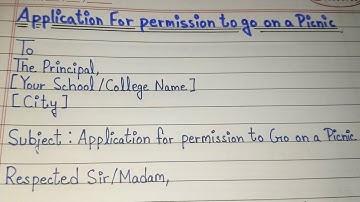 Application For permission to go on a Picnic
To
The Principal,
[Your School/College Name]
[City]
Subject : Application for permission to Go on a Picnic
Respected Sir/Madam,